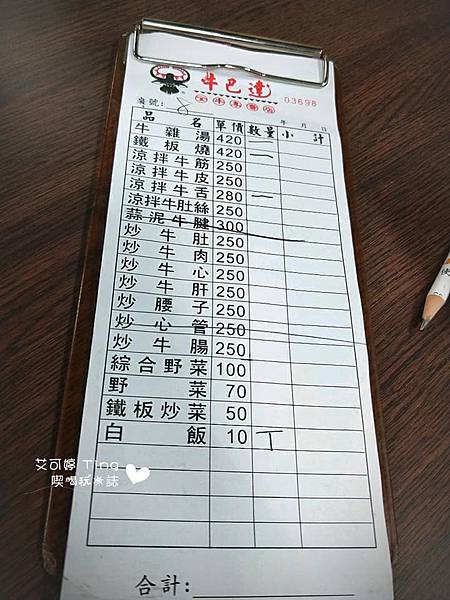 牛巴達
03698
桌號: 8
年 月 日
品 名 單價 數量 小 計
牛雜湯 420 一
鐵板燒 420 一
涼拌牛筋 250
涼拌牛皮 250
涼拌牛舌 280 一
涼拌牛肚絲 250
蒜泥牛腱 300
炒牛肚 250
炒牛肉 250
炒牛心 250
炒牛肝 250
炒腰子 250
炒心管 250
炒牛腸 250
綜合野菜 100
野菜 70
鐵板炒菜 50
白飯 10 丅
合計:
艾可婷 Ting
喫喝玩樂誌